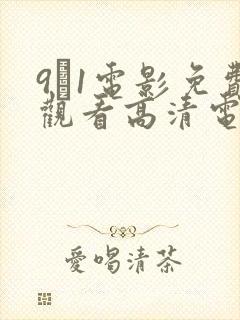 9 1電影免費
觀看高清電
愛喝清茶